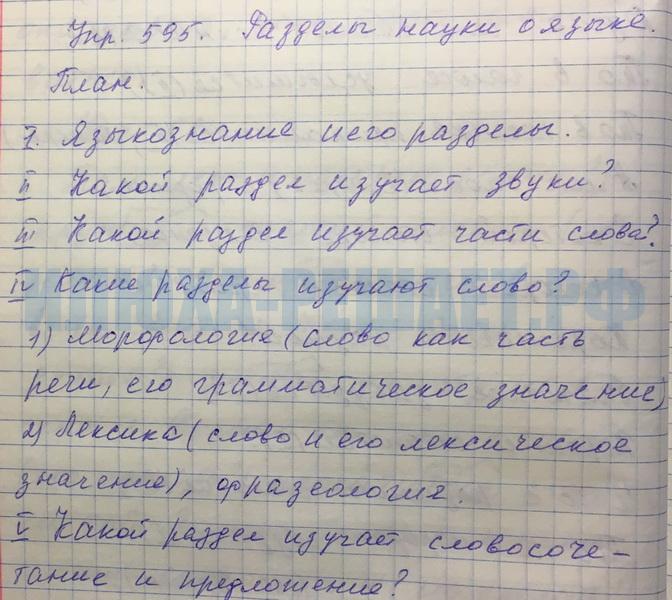 Упр. 595. Разделы науки о языке.
План.
I. Языкознание и его разделы.
II Какой раздел изучает звуки?
III Какой раздел изучает части слова?
IV Какие разделы изучают слово?
ИЛЮХА-РЕШАЕТ.РФ
1) Морфология (слово как часть
речи, его грамматическое значение)
2) Лексика (слово и его лексическое
значение), фразеология.
V Какой раздел изучает словосоче-
тание и предложение?